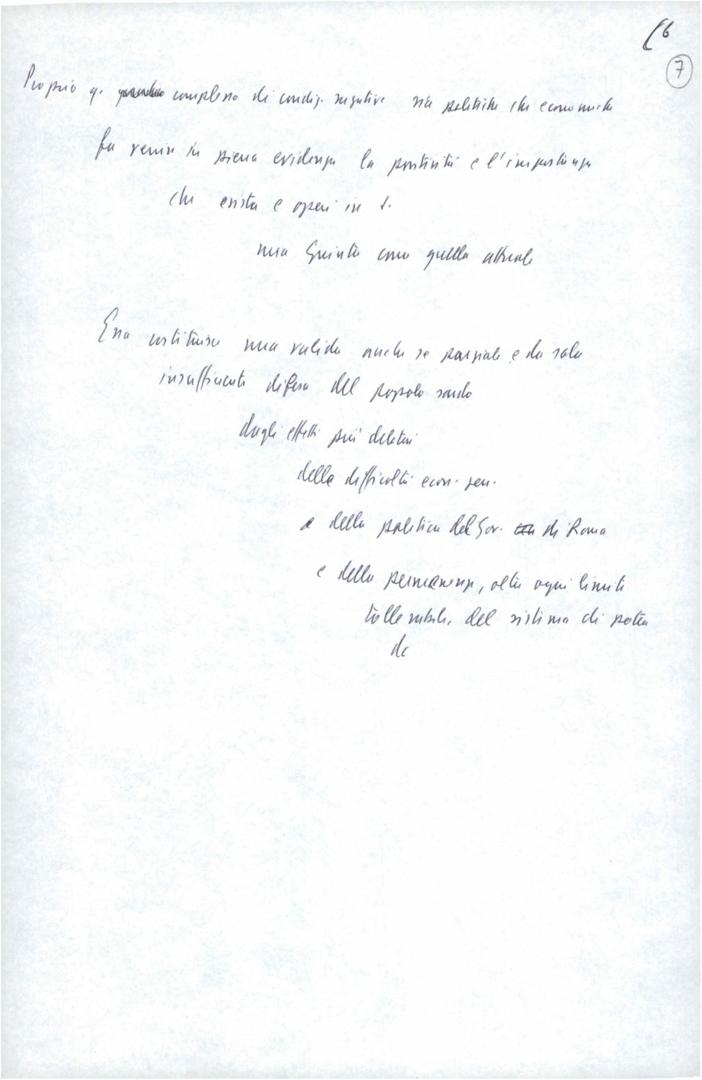 7
Proprio q. complesso di condiz. negative sia politiche che economiche
fa venire in piena evidenza la positività e l'importanza
che esista e operi in S.
una Giunta come quella attuale
Essa costituisce una valida anche se parziale e da sola
insufficiente difesa del popolo sardo
dagli effetti più deleteri
della difficoltà econ. gen.
e della politica del Gov. di Roma
e della permanenza, oltre ogni limite
tollerabile, del sistema di potere
dc